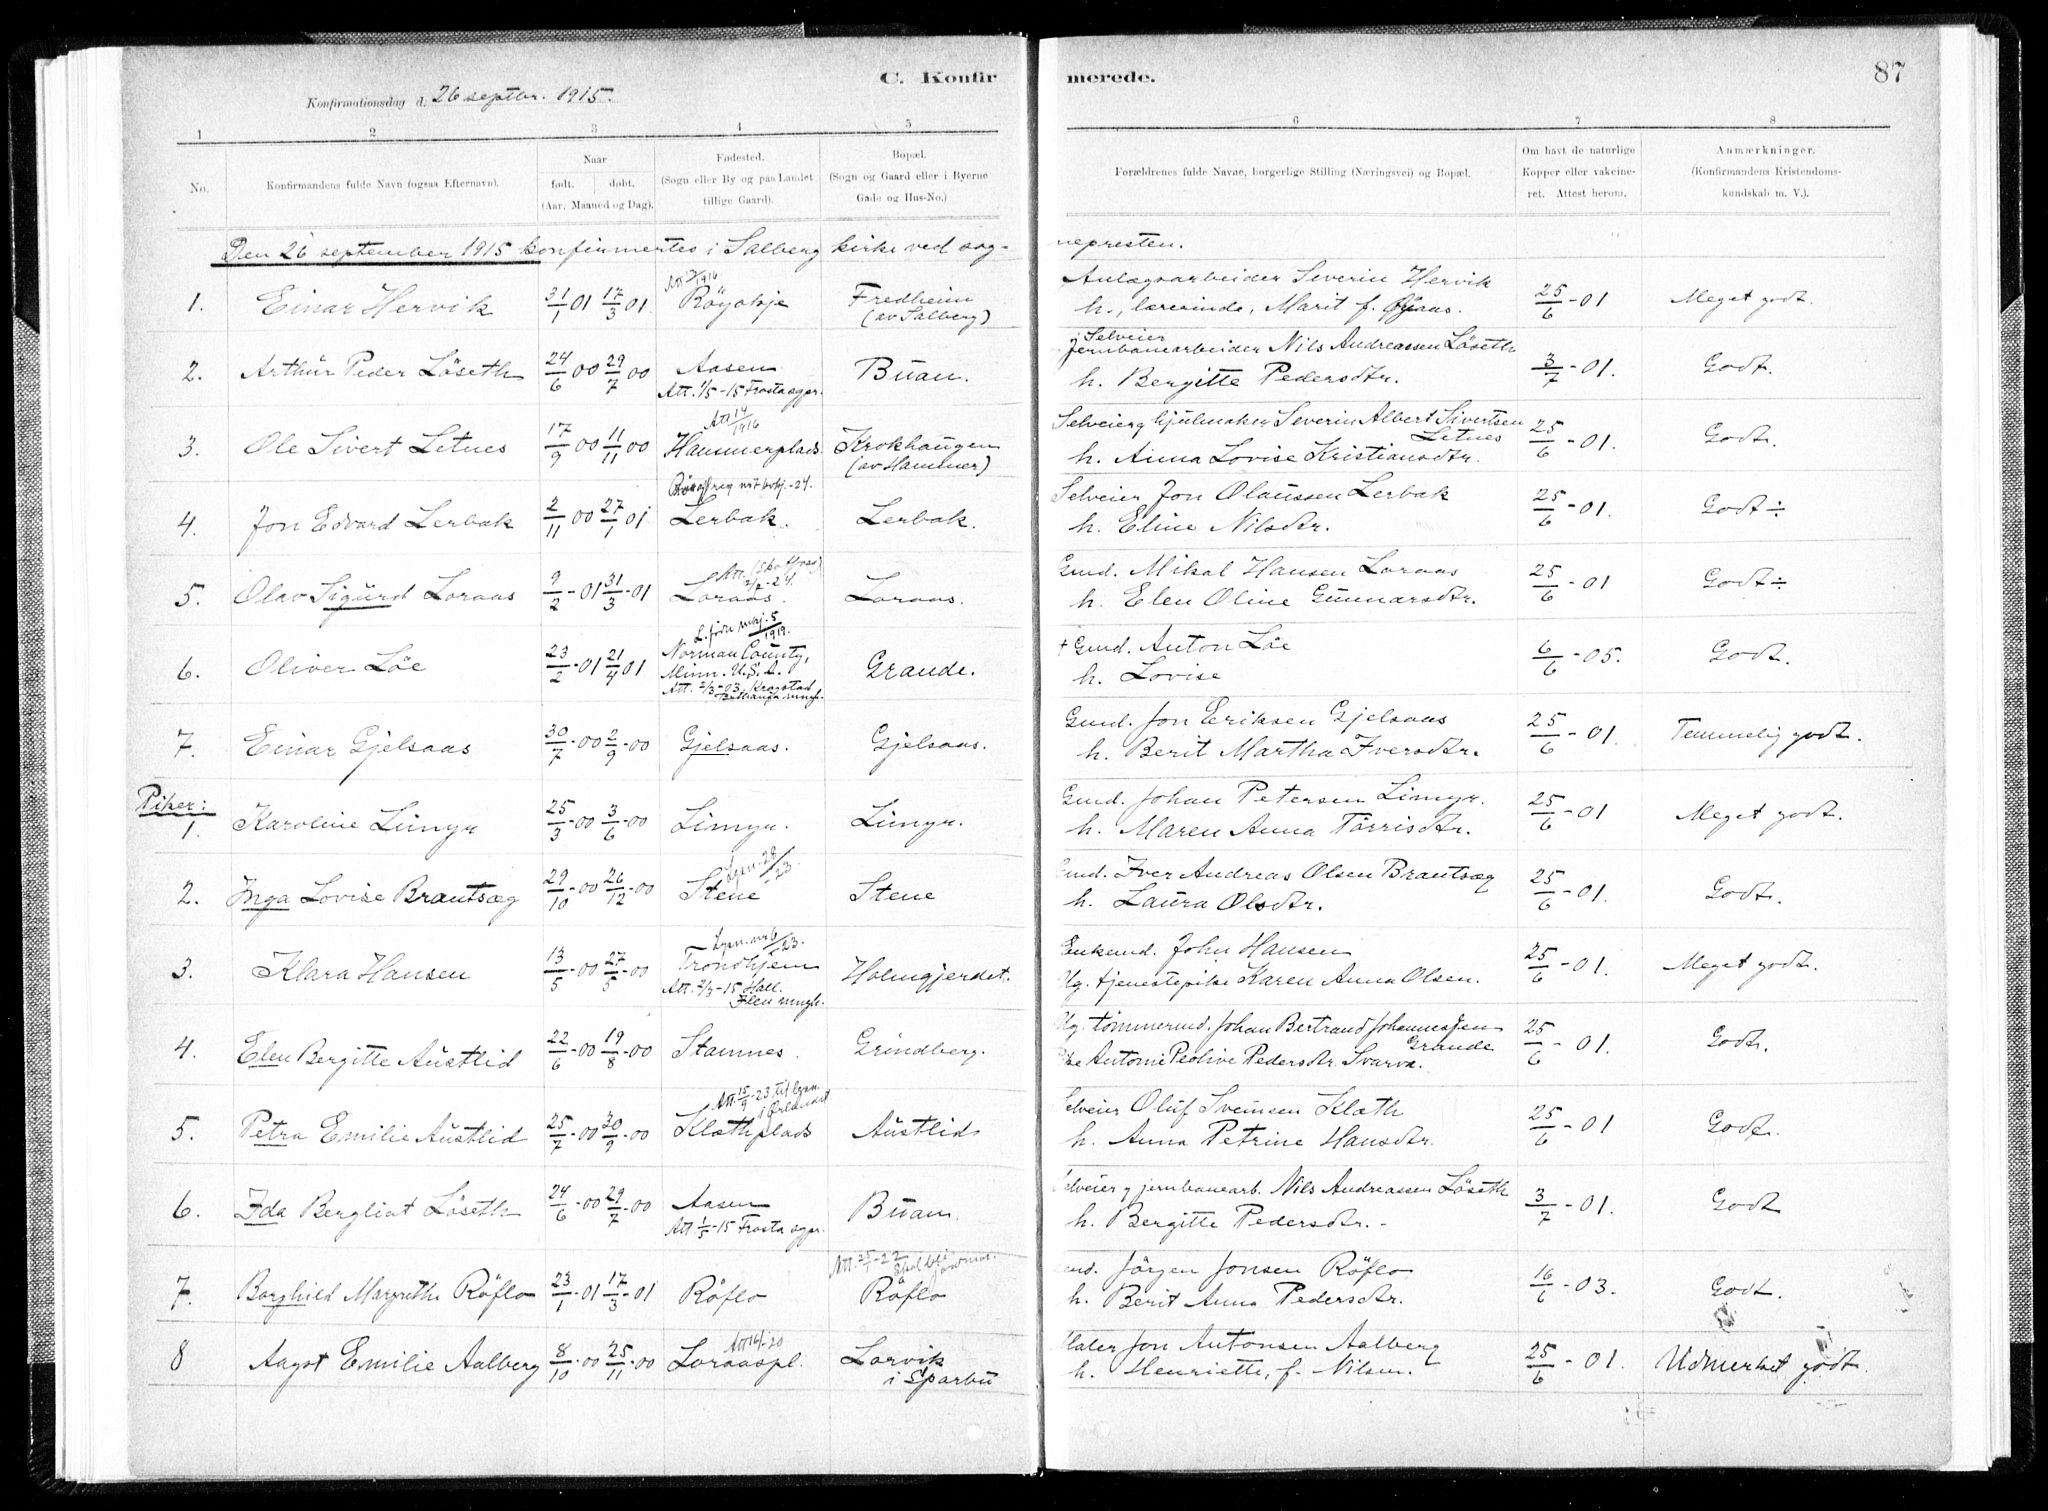 C. Konfirmerede.
87
Konfirmationsdag d. 26 septbr. 1915.
1 2 3 4 5 6 7 8
No.
Konfirmandens fulde Navn (ogsaa Efternavn).
Naar født. døbt. (Aar, Maaned og Dag).
Fødested. (Sogn eller By og paa Landet tillige Gaard).
Bopæl. (Sogn og Gaard eller i Byerne Gade og Hus-No.)
Forældrenes fulde Navne, borgerlige Stilling (Næringsvei) og Bopæl.
Om havt de naturlige Kopper eller vakcineret. Attest herom.
Anmærkninger. (Konfirmandens Kristendomskundskab m. V.).
Den 26 september 1915 konfirmertes i Salberg kirke ved sognepresten.
1. Einar Hervik 31/1 01 17/3 01 Röyskje Fredheim (av Salberg) Anlægsarbeider Severin Hervik h., lærerinde, Marit f. 25/6 - 01 Meget godt.
2. Arthur Peder Löseth 24/6 00 29/7 00 Aasen Att. 1/5 - 15 Frosta sgpr. Buan. Selveier Jernbanearbeider Nils Andreassen Löseth h. Bergitte Pedersdtr. 3/7 - 01. Godt.
3. Ole Sivert Letnes 17/9 00 11/11 00 Att 14/1916 Hammerplads Krokhaugen (av Hammer) Selveier g hjulmaker Severin Albert Sivertsen Letnes h. Anna Lovise Kristiansdtr. 25/6 - 01. Godt.
4. Jon Edvard Lerbak 2/11 00 27/1 01 Lerbak. Lerbak. Selveier Jon Olaussen Lerbak h. Eline Nilsdtr. 25/6 - 01. Godt ÷
5. Olav Sigurd Loraas 9/2 - 01 31/3 - 01 Loraas. Loraas. Gmd. Mikal Hansen Loraas h. Elen Oline Gunnarsdtr. 25/6 - 01 Godt ÷
6. Oliver Löe 23/2 - 01 21/4 01 Norman County, Minn. U.S.A. Att. 2/3 - 03, Grande. † Gmd. Anton Löe h. Lovise 6/6 - 05. Godt.
7. Einar Gjelsaas 30/7 - 00 2/9 - 00 Gjelsaas. Gjelsaas. Gmd. Jon Eriksen Gjelsaas h. Berit Martha Iversdtr. 25/6 - 01. Temmelig godt.
Piker:
1. Karoline Limyr 25/3 - 00 3/6 - 00 Limyr. Limyr. Gmd. Johan Petersen Limyr. h. Maren Anna Törrisdtr. 25/6 - 01 Meget godt.
2. Inga Lovise Brautsæg 29/10 - 00 26/12 - 00 Stene Stene Gmd. Iver Andreas Olsen Brautsæg h. Laura Olsdtr. 25/6 - 01. Godt.
3. Klara Hansen 13/5 - 00 27/5 - 00 Trondhjem Att. 2/3 - 15 Holmgjerdet. Enkemd. John Hansen Ug. tjenestepike Karen Anna Olsen. 25/6 - 01. Meget godt.
4. Elen Bergitte Austlid 22/6 - 00 19/8 - 00 Stamnes. Grindberg. Ug. tömmermd. Johan Bertrand Johannessen Grande Antonie Peolive Pedersdtr. Svarva. 25/6 - 01. Godt.
5. Petra Emilie Austlid 25/7 - 00 30/9 - 00 Att. 15/9 - 23 til lysn. i Ørlandet Klæthplads Austlid Selveier Oluf Sveinsen Klæth h. Anna Petrine Hansdtr. 25/6 - 01 Godt.
6. Ida Bergliot Löseth 24/6 - 00 29/7 - 00 Aasen Att 1/5 - 15 Frosta sgpr. Buan. Selveier g jernbanearb. Nils Andreassen Löseth h. Bergitte Pedersdtr. - 3/7 - 01. Godt
7. Borghild Margrethe Röflo 23/1 - 01 17/3 - 01 Röflo Röflo Gmd. Jörgen Jonsen Röflo h. Berit Anna Pedersdtr. 16/6 - 03. Godt.
8 Aagot Emilie Aalberg 8/10 - 00 25/11 - 00 Loraaspl. Lorvik i Sparbu Maler Jon Antonsen Aalberg h. Henriette, f. Nilsen. 25/6 - 01. Udmerket godt.